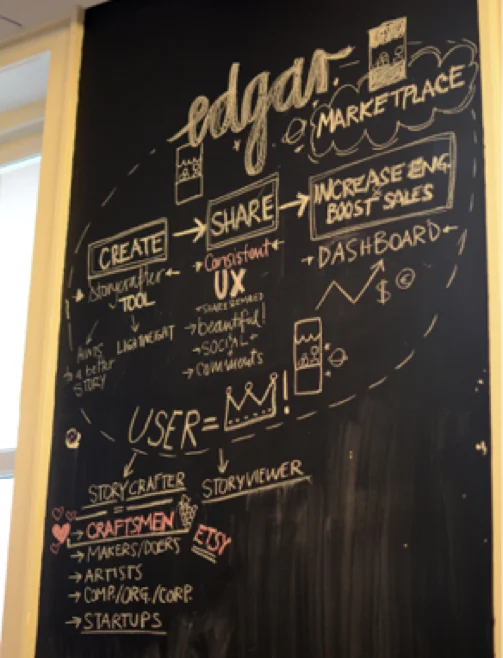 edgar
MARKETPLACE
CREATE → SHARE → INCREASE ENG.
BOOST SALES
Storycrafter
TOOL
LIGHTWEIGHT
HINTS
→ a better
STORY
→ Consistent ←
UX
→ beautiful!
→ SOCIAL ←
→ Comments
→ DASHBOARD ←
$ €
USER = !
STORYCRAFTER
=
→ CRAFTSMEN
ETSY
→ MAKERS/DOERS
→ ARTISTS
→ COMP./ORG./CORP.
→ STARTUPS
STORYVIEWER